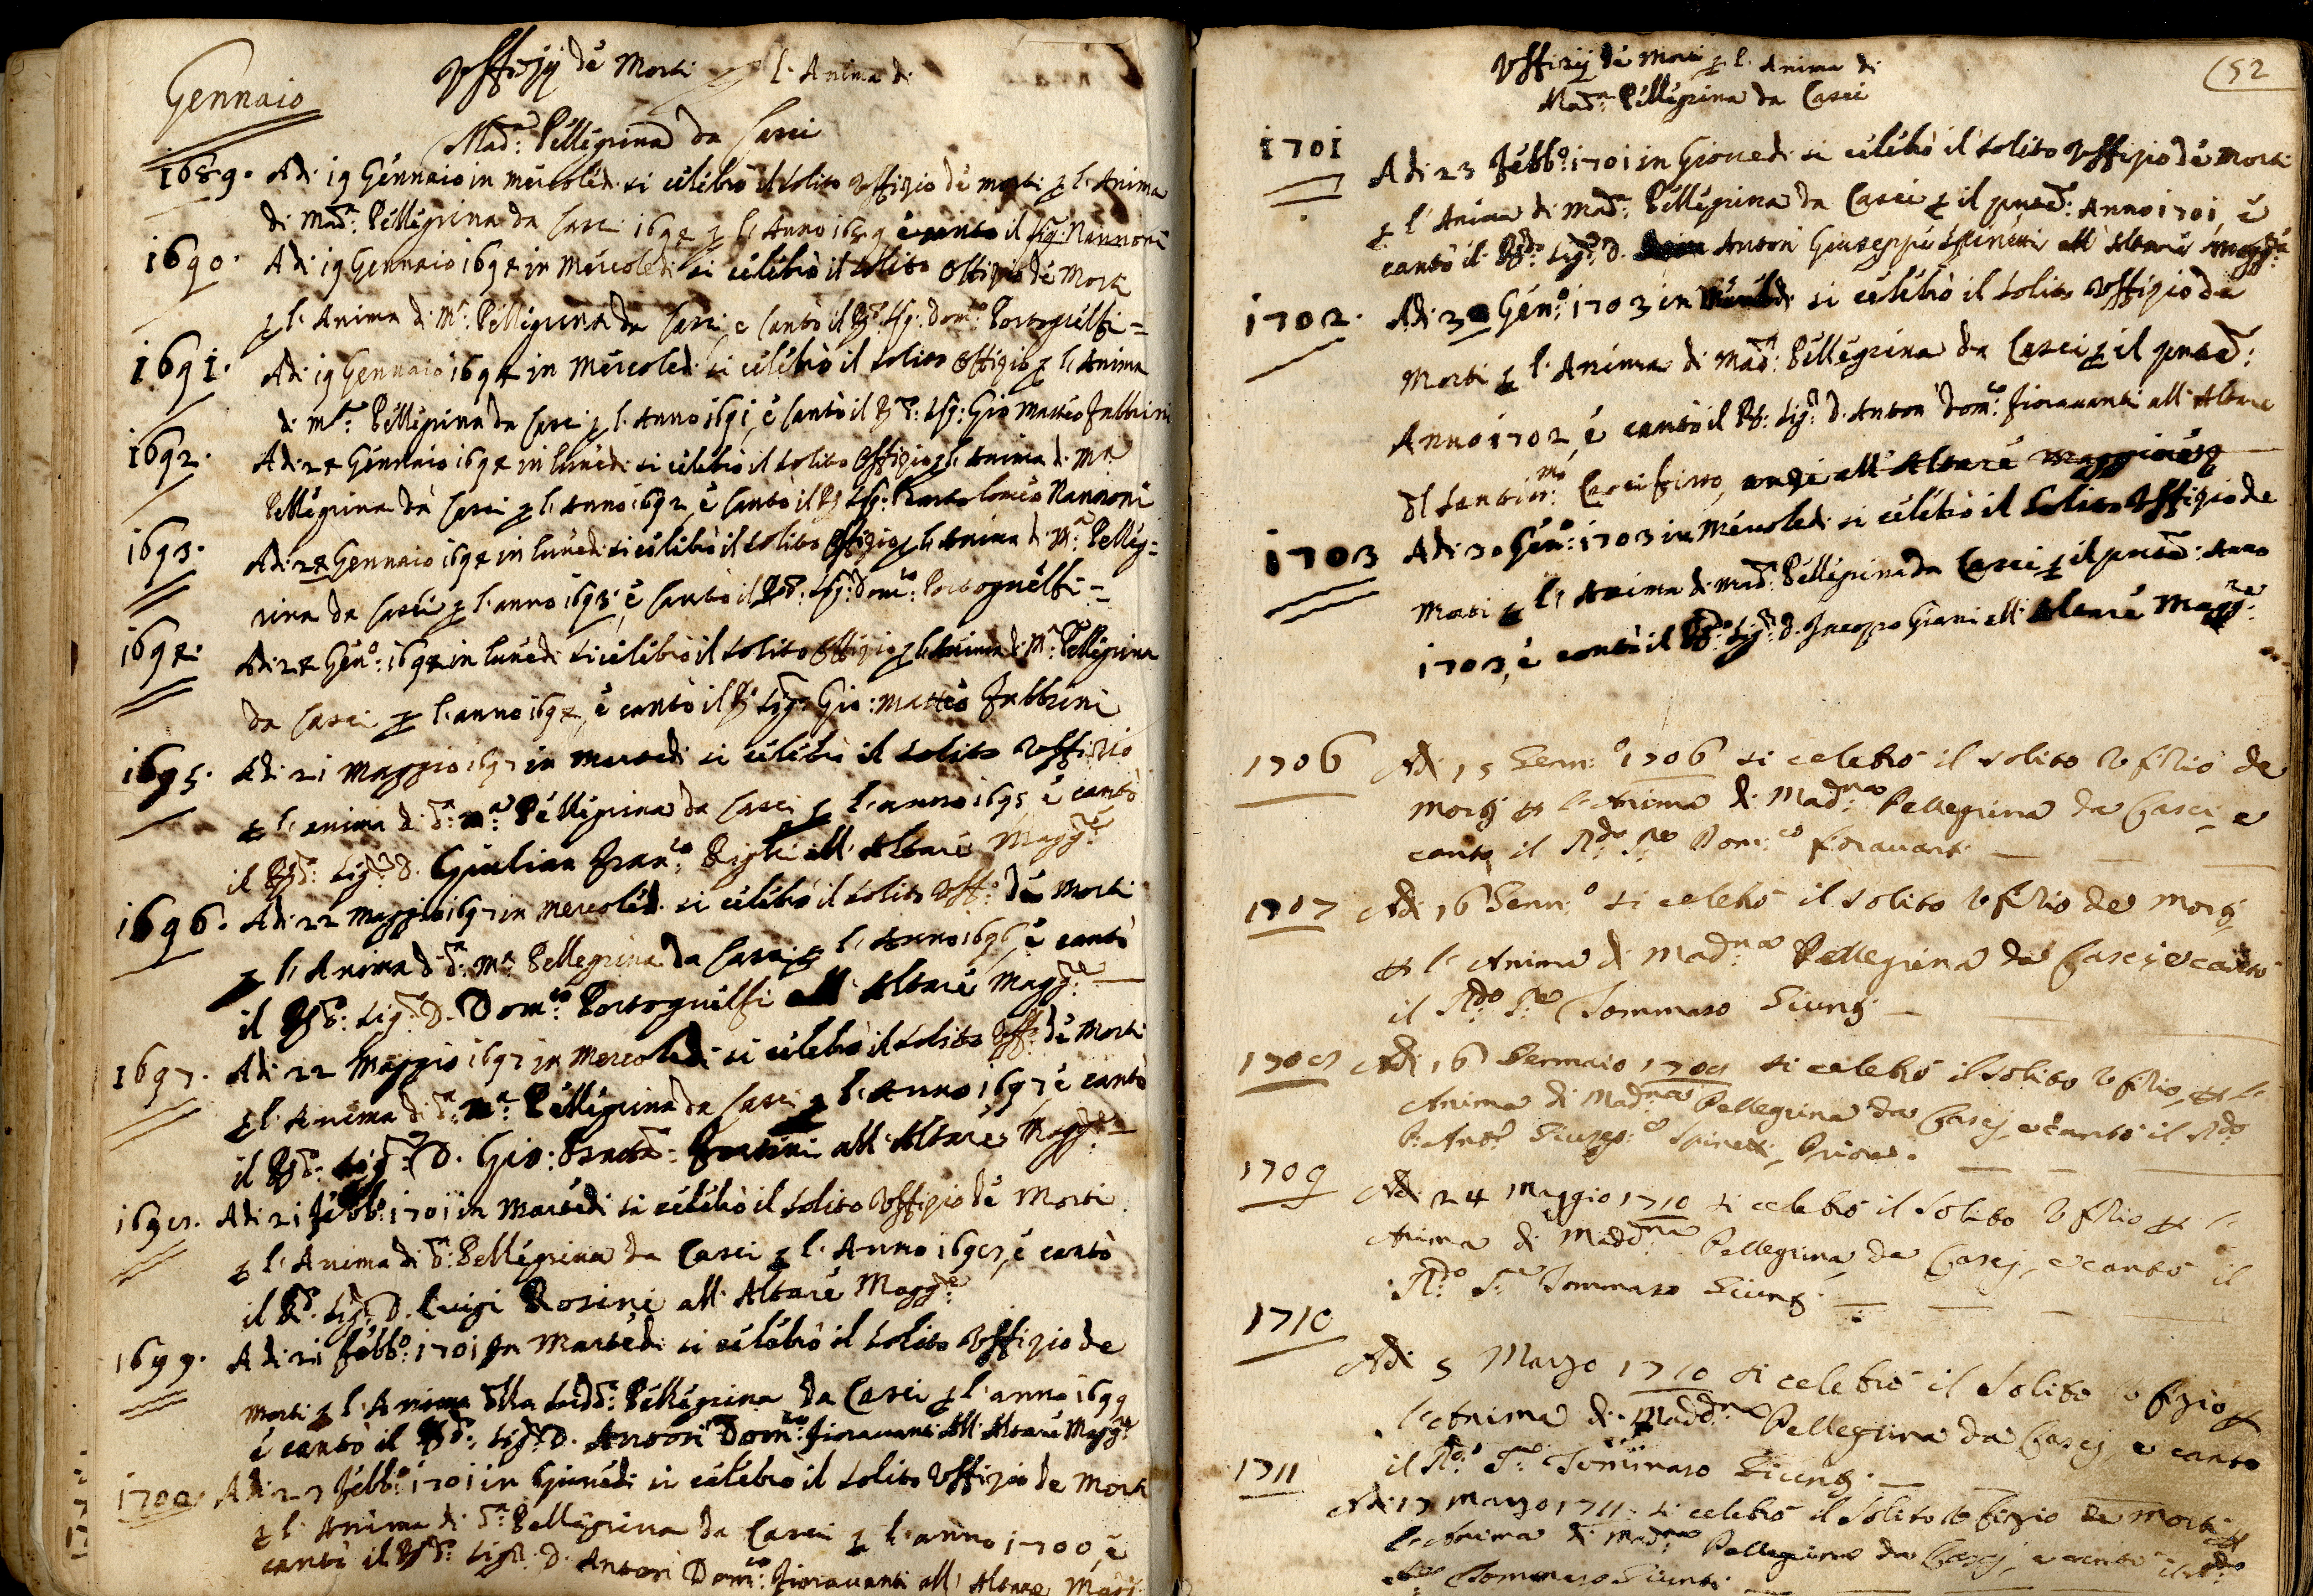 Gennaio
Uffizij dé Morti p l'Anima di
Mad:ª Pellegrina da Casci
1689. Adi 19 Gennaio in mercoledi si celebrò il solito Uffizio dé morti p l'Anima
di Mad:ª Pellegrina da Casci 1694 p l'Anno 1689 è cantò il Sig: Nannoni
1690. Adi 19 Gennaio 1694 in Mercoledi si celebrò il solito Offizio dé Morti
p l'Anima di Mª: Pellegrina da Casci e cantò il Rdo: Sig: Domco: Portoguelfi =
1691. Adi 19 Gennaio 1694 in Mercoledi si celebrò il solito Offizio p l'Anima
di Mª: Pellegrina da Casci p l'Anno 1691, è cantò il Rdo: Sig: Gio Matteo Fabbrini
1692. Adi 24 Gennaio 1694 in lunedi si celebrò il solito Offizio p l'Anima di Mª
Pellegrina da Casci p l'Anno 1692, è cantò il Rdo Sig: Bartolomeo Nannoni
1693. Adi 24 Gennaio 1694 in lunedi si celebrò il solito Offizio p l'Anima di Mª: Pelleg=
rina da Casci p l'anno 1693, è cantò il Rdo: Sig: Domco: Portoguelfi =
1694. Adi 24 Genº: 1694 in lunedi si celebrò il solito Offizio p l'Anima di Mª Pellegrina
da Casci p l'anno 1694, è cantò il Rdo Sig: Gio: Matteo Fabbrini
1695. Adi 21 Maggio 1697 in martedi si celebrò il solito Uffizio
p l'anima di dª: Mª: Pellegrina da Casci p l'anno 1695 è cantò
il Rdo: Sigre D. Giulian Franco: all'Altare Maggre
1696. Adi 22 Maggio 1697 in Mercoledi si celebrò il solito Uffº: dé Morti
p l'Anima di dª: Mª: Pellegrina da Casci p l'Anno 1696, è cantò
il Rdo: Sigr: D. Domco Portoguelfi all'Altare Maggre: —
1697. Adi 22 Maggio 1697 in Mercoledi si celebrò il solito Uffº: dé Morti
p l'Anima di dª: Mª: Pellegrina da Casci p l'Anno 1697 è cantò
il Rdo: Sigr: D. Gio: all'Altare Maggre —
1698. Adi 21 Febbº: 1701 in Martedi si celebrò il solito Uffizio dé Morti
p l'Anima di dª: Pellegrina da Casci p l'Anno 1698, è cantò
il Rdo: Sigr: D. Luigi Rosini all'Altare Maggre
1699. Adi 21 Febbº: 1701 In Martedi si celebrò il solito Uffizio de
Morti p l'Anima dlla sudda: Pellegrina da Casci p l'anno 1699
è cantò il Rdo: Sigr: D. Anton Domco: Fioravanti all'Altare Maggre
1700. Adi 23 Febbº: 1701 in Giovedi si celebrò il solito Uffizio de Morti
p l'Anima di dª Pellegrina da Casci p l'anno 1700, è
cantò il Rdo: Sigr: D. Anton Domco: Fioravanti all'Altare Magg
(52
Uffizij dé Morti p l'Anima di
Madª: Pellegrina da Casci
1701 Adi 23 Febbº: 1701 in Giovedi si celebrò il solito Uffizio dé Morti
p l'Anima di Madª: Pellegrina da Casci p il pnte: Anno 1701, è
cantò il Rdo: Sigre D. Anton Giuseppe Spinetti all'Altare Maggre
1702. Adi 30 Genº: 1703 in si celebrò il solito Uffizio de
Morti p l'Anima di Madª: Pellegrina da Casci p il pnte:
Anno 1702, è cantò il Rdo: Sigr D. Anton Domco: Fioravanti all'Altare
dl Santismo: Crocifisso, anzi all'Altare Maggiore
1703 Adi 30 Genº: 1703 in Mercoledi si celebrò il solito Uffizio de
Morti p l'Anima di Madª: Pellegrina da Casci p il pnte: Anno
1703, è cantò il Rdo: Sigr: D. Jacopo Giani all'Altare Maggre:
1706 Adi 15 Genn:º 1706 si celebrò il solito Ufizio de
Morti p l'Anima di Madna Pellegrina da Casci, e
cantò il Rdo Pre Dom:co Foravanti —
1707 Adi 16 Genn:º si celebrò il solito Ufizio de Morti
p l'Anima di Madna Pellegrina da Casci, e cantò
il Rdo Pre Tommaso Giunti —
1708 Adi 16 Gennaio 1708 si celebrò il solito Ufizio, p l'
Anima di Madna Pellegrina da Casci, e cantò il Rdo
P: Antº Giusep:e Spinetti, Priore. —
1709 Adi 24 Maggio 1710 si celebrò il solito Ufizio p l'
Anima di Maddna Pellegrina da Casci, e cantò il
Rdo Pre Tommaso Giunti —
1710 Adi 5 Marzo 1710 si celebrò il solito Ufizio p
l'Anima di Maddna Pellegrina da Casci, e cantò
il Rdo: Pre Tommaso Giunti —
1711 Adi 17 Marzo 1711 si celebrò il solito Ufizio de Morti p
l'Anima di Madna Pellegrina da Casci, e cantò il Rdo
Tommaso Giunti —